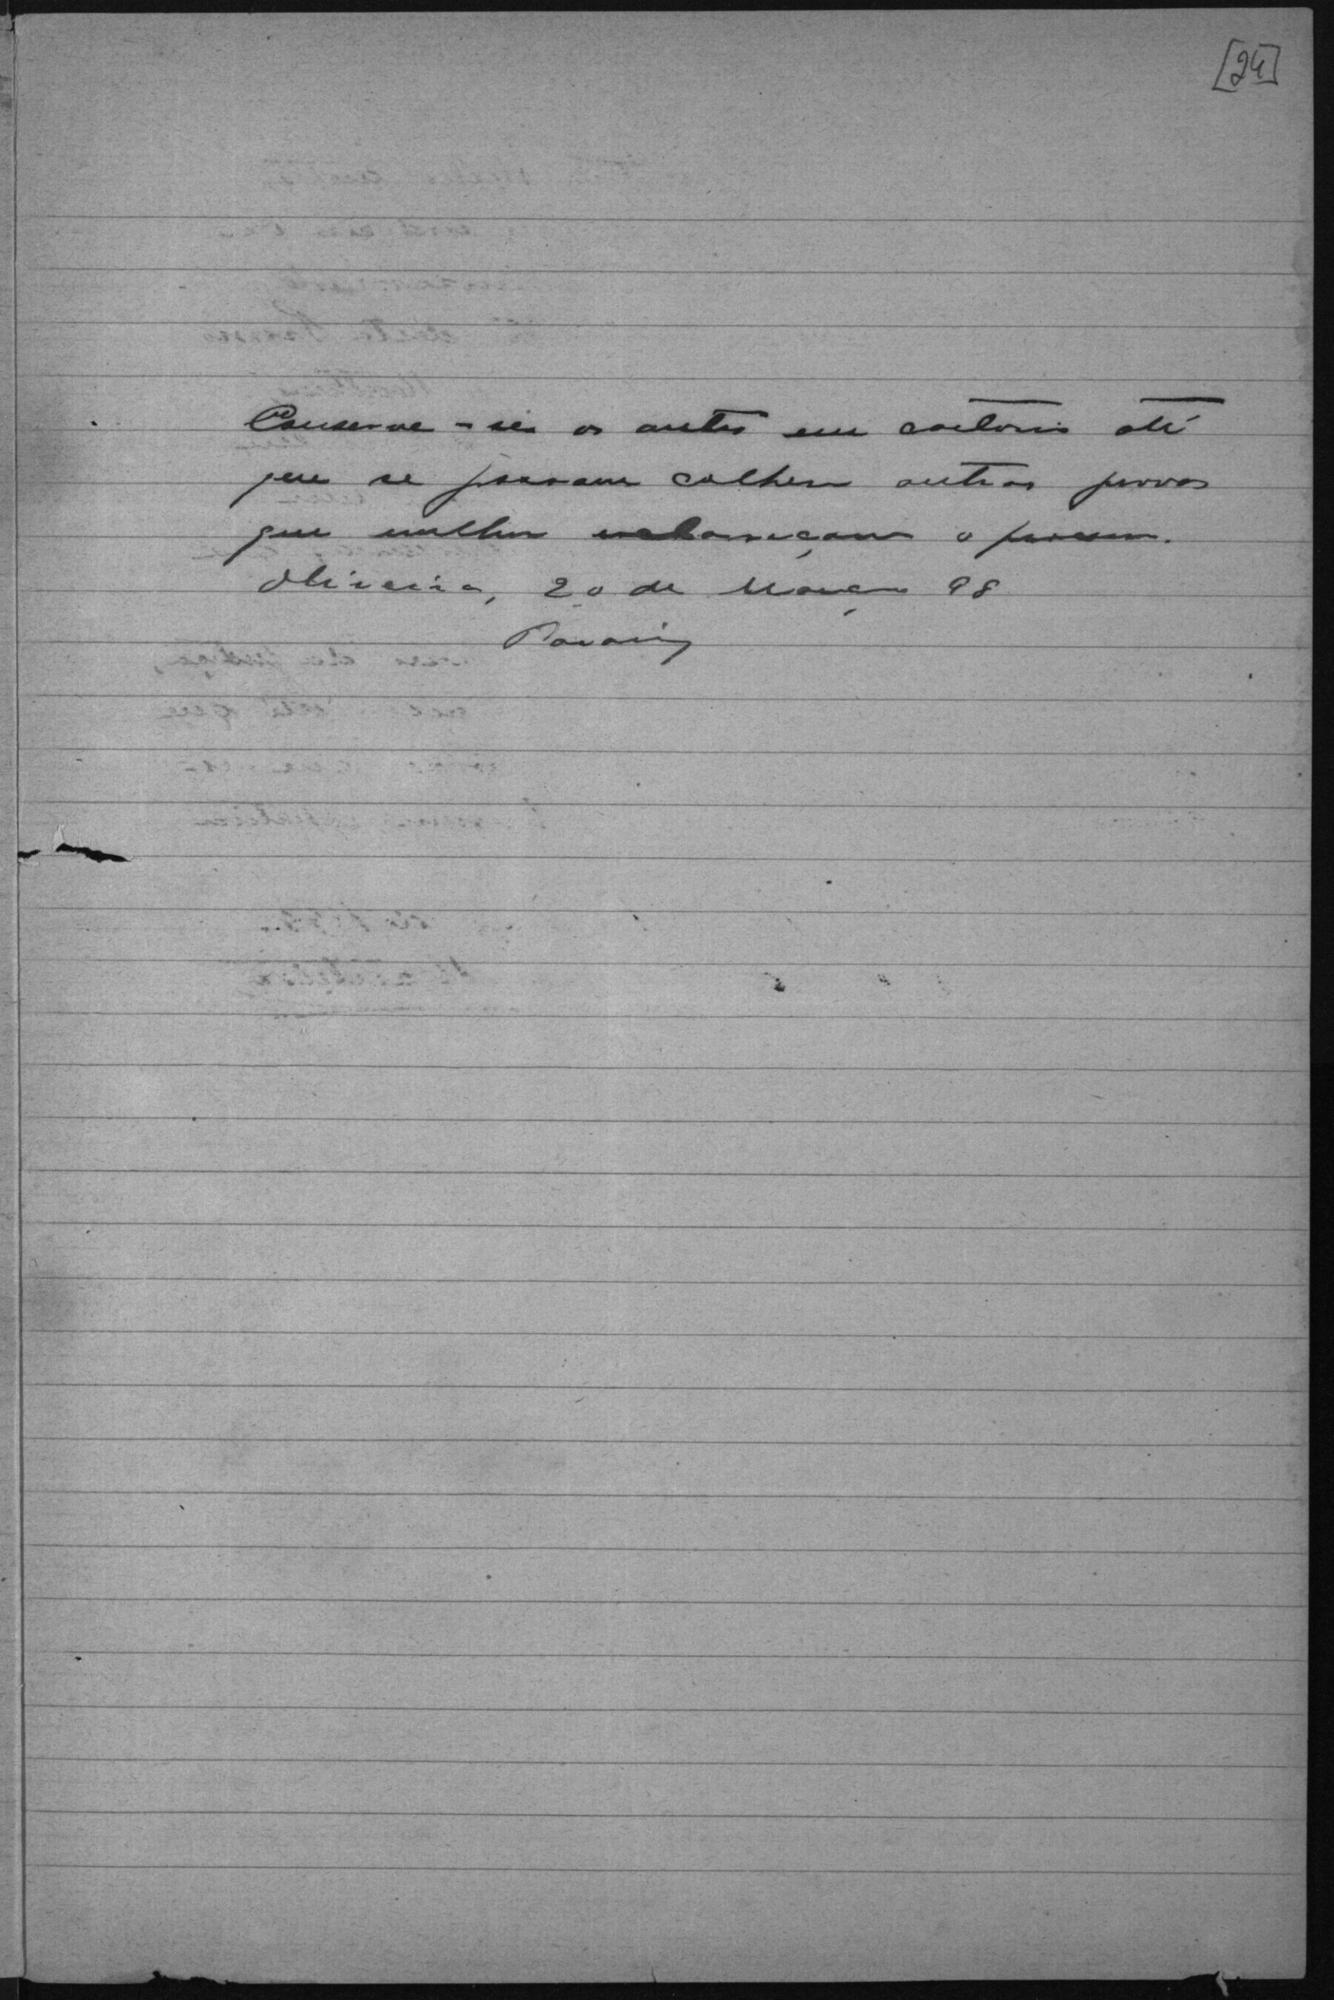 [24]
Conserve-se os autos em cartorio até
que se possam colher outras provas
que melhor esclareçam o processo.
Oliveira, 20 de Março 98